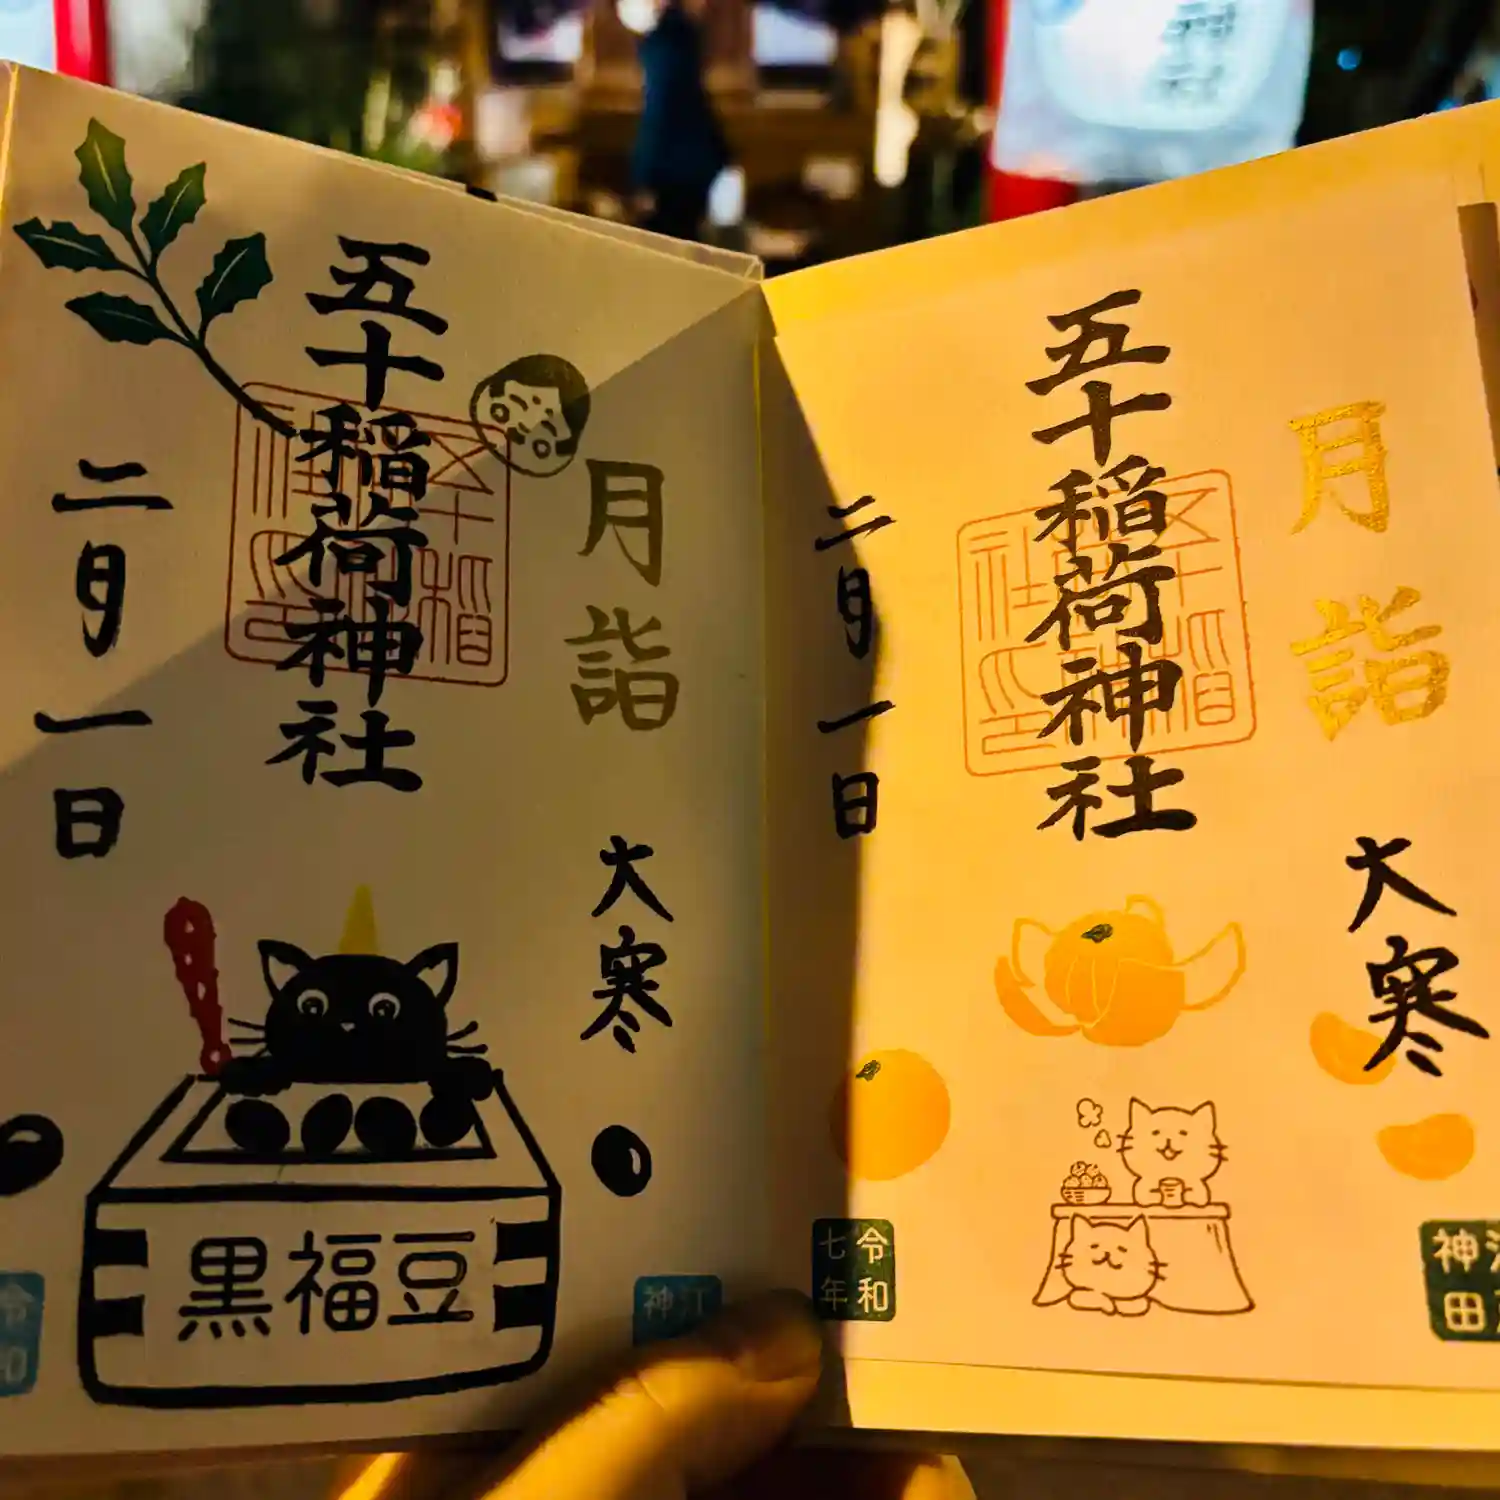 月詣
大寒
五十稲荷神社
二月一日
黒福豆
月詣
大寒
五十稲荷神社
二月一日
令和
七年
神田